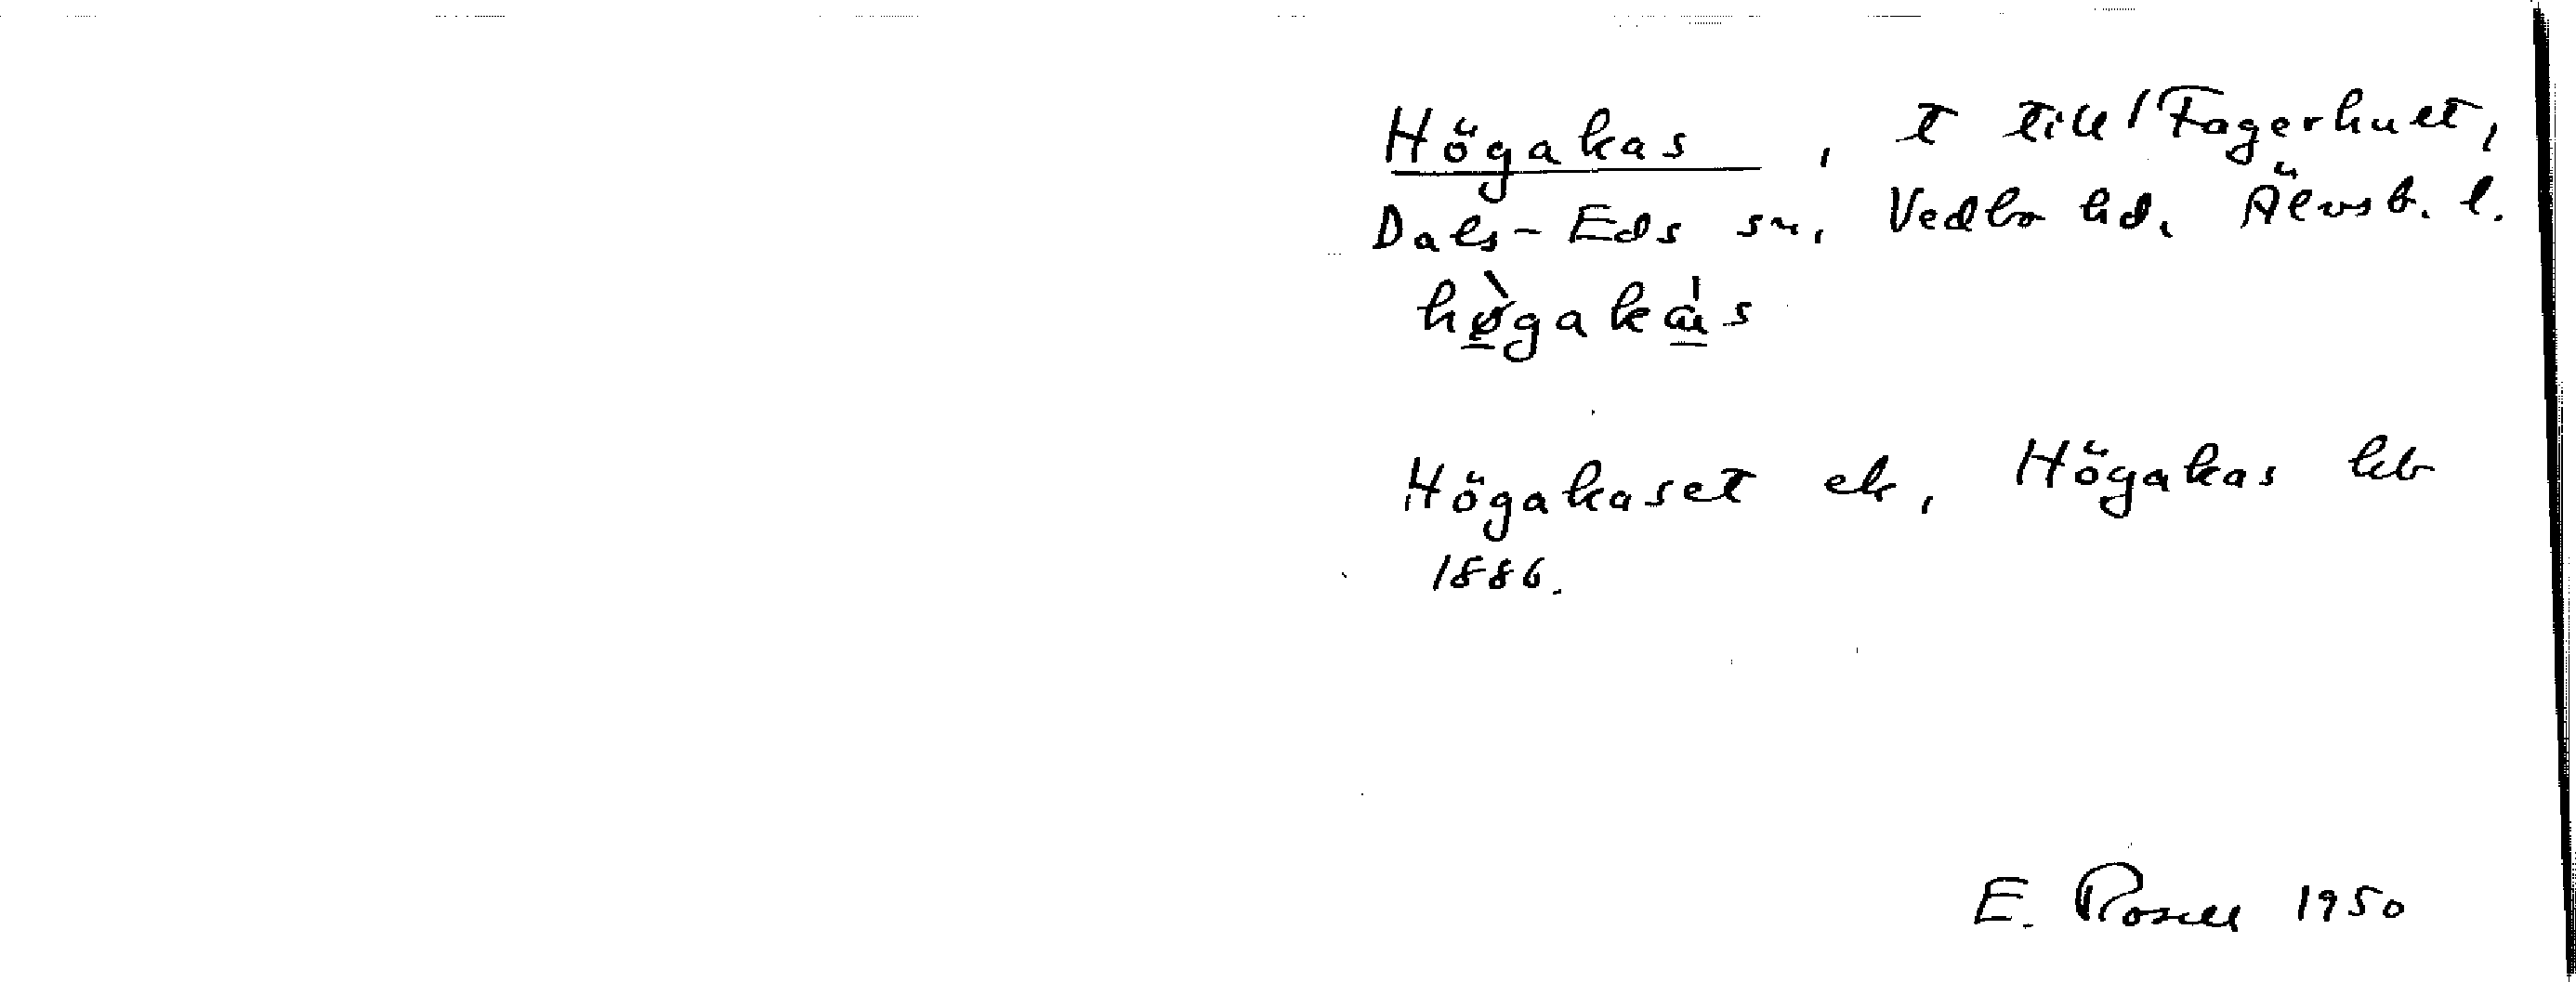 Högakas, t till Fagerhult,
Dals-Eds sn, Vedbo hd, Älvsb. l.
hø̀gakɑ̀s
Högakaset ek, Högakas kb
1886.
E. Rosell 1950